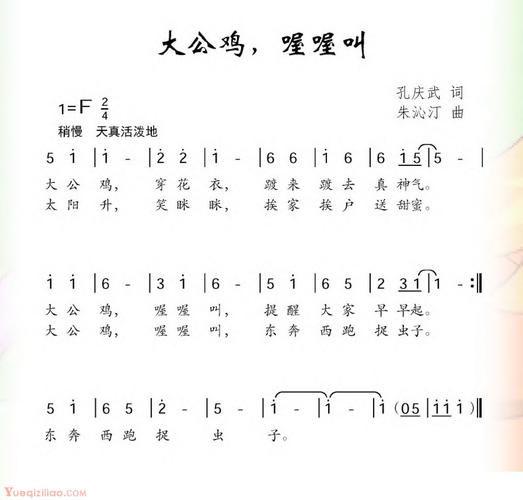 大公鸡，喔喔叫
孔庆武 词
1=F 2/4
朱沁汀 曲
稍慢 天真活泼地
5 i | i - | 2̇ 2̇ | i - | 6 6 | i 6 | 6 i5 | 5 - |
大公鸡，穿花衣，踱来踱去真神气。
太阳升，笑眯眯，挨家挨户送甜蜜。
i i | 6 - | 3̇ i | 6 - | 5 i | 6 5 | 2 3i | i - :‖
大公鸡，喔喔叫，提醒大家早早起。
大公鸡，喔喔叫，东奔西跑捉虫子。
5 i | 6 5 | 2̇ - | 5 - | i - | i - | i - | (05 | iii i) ‖
东奔西跑捉虫子。
Yueqiziliao.com